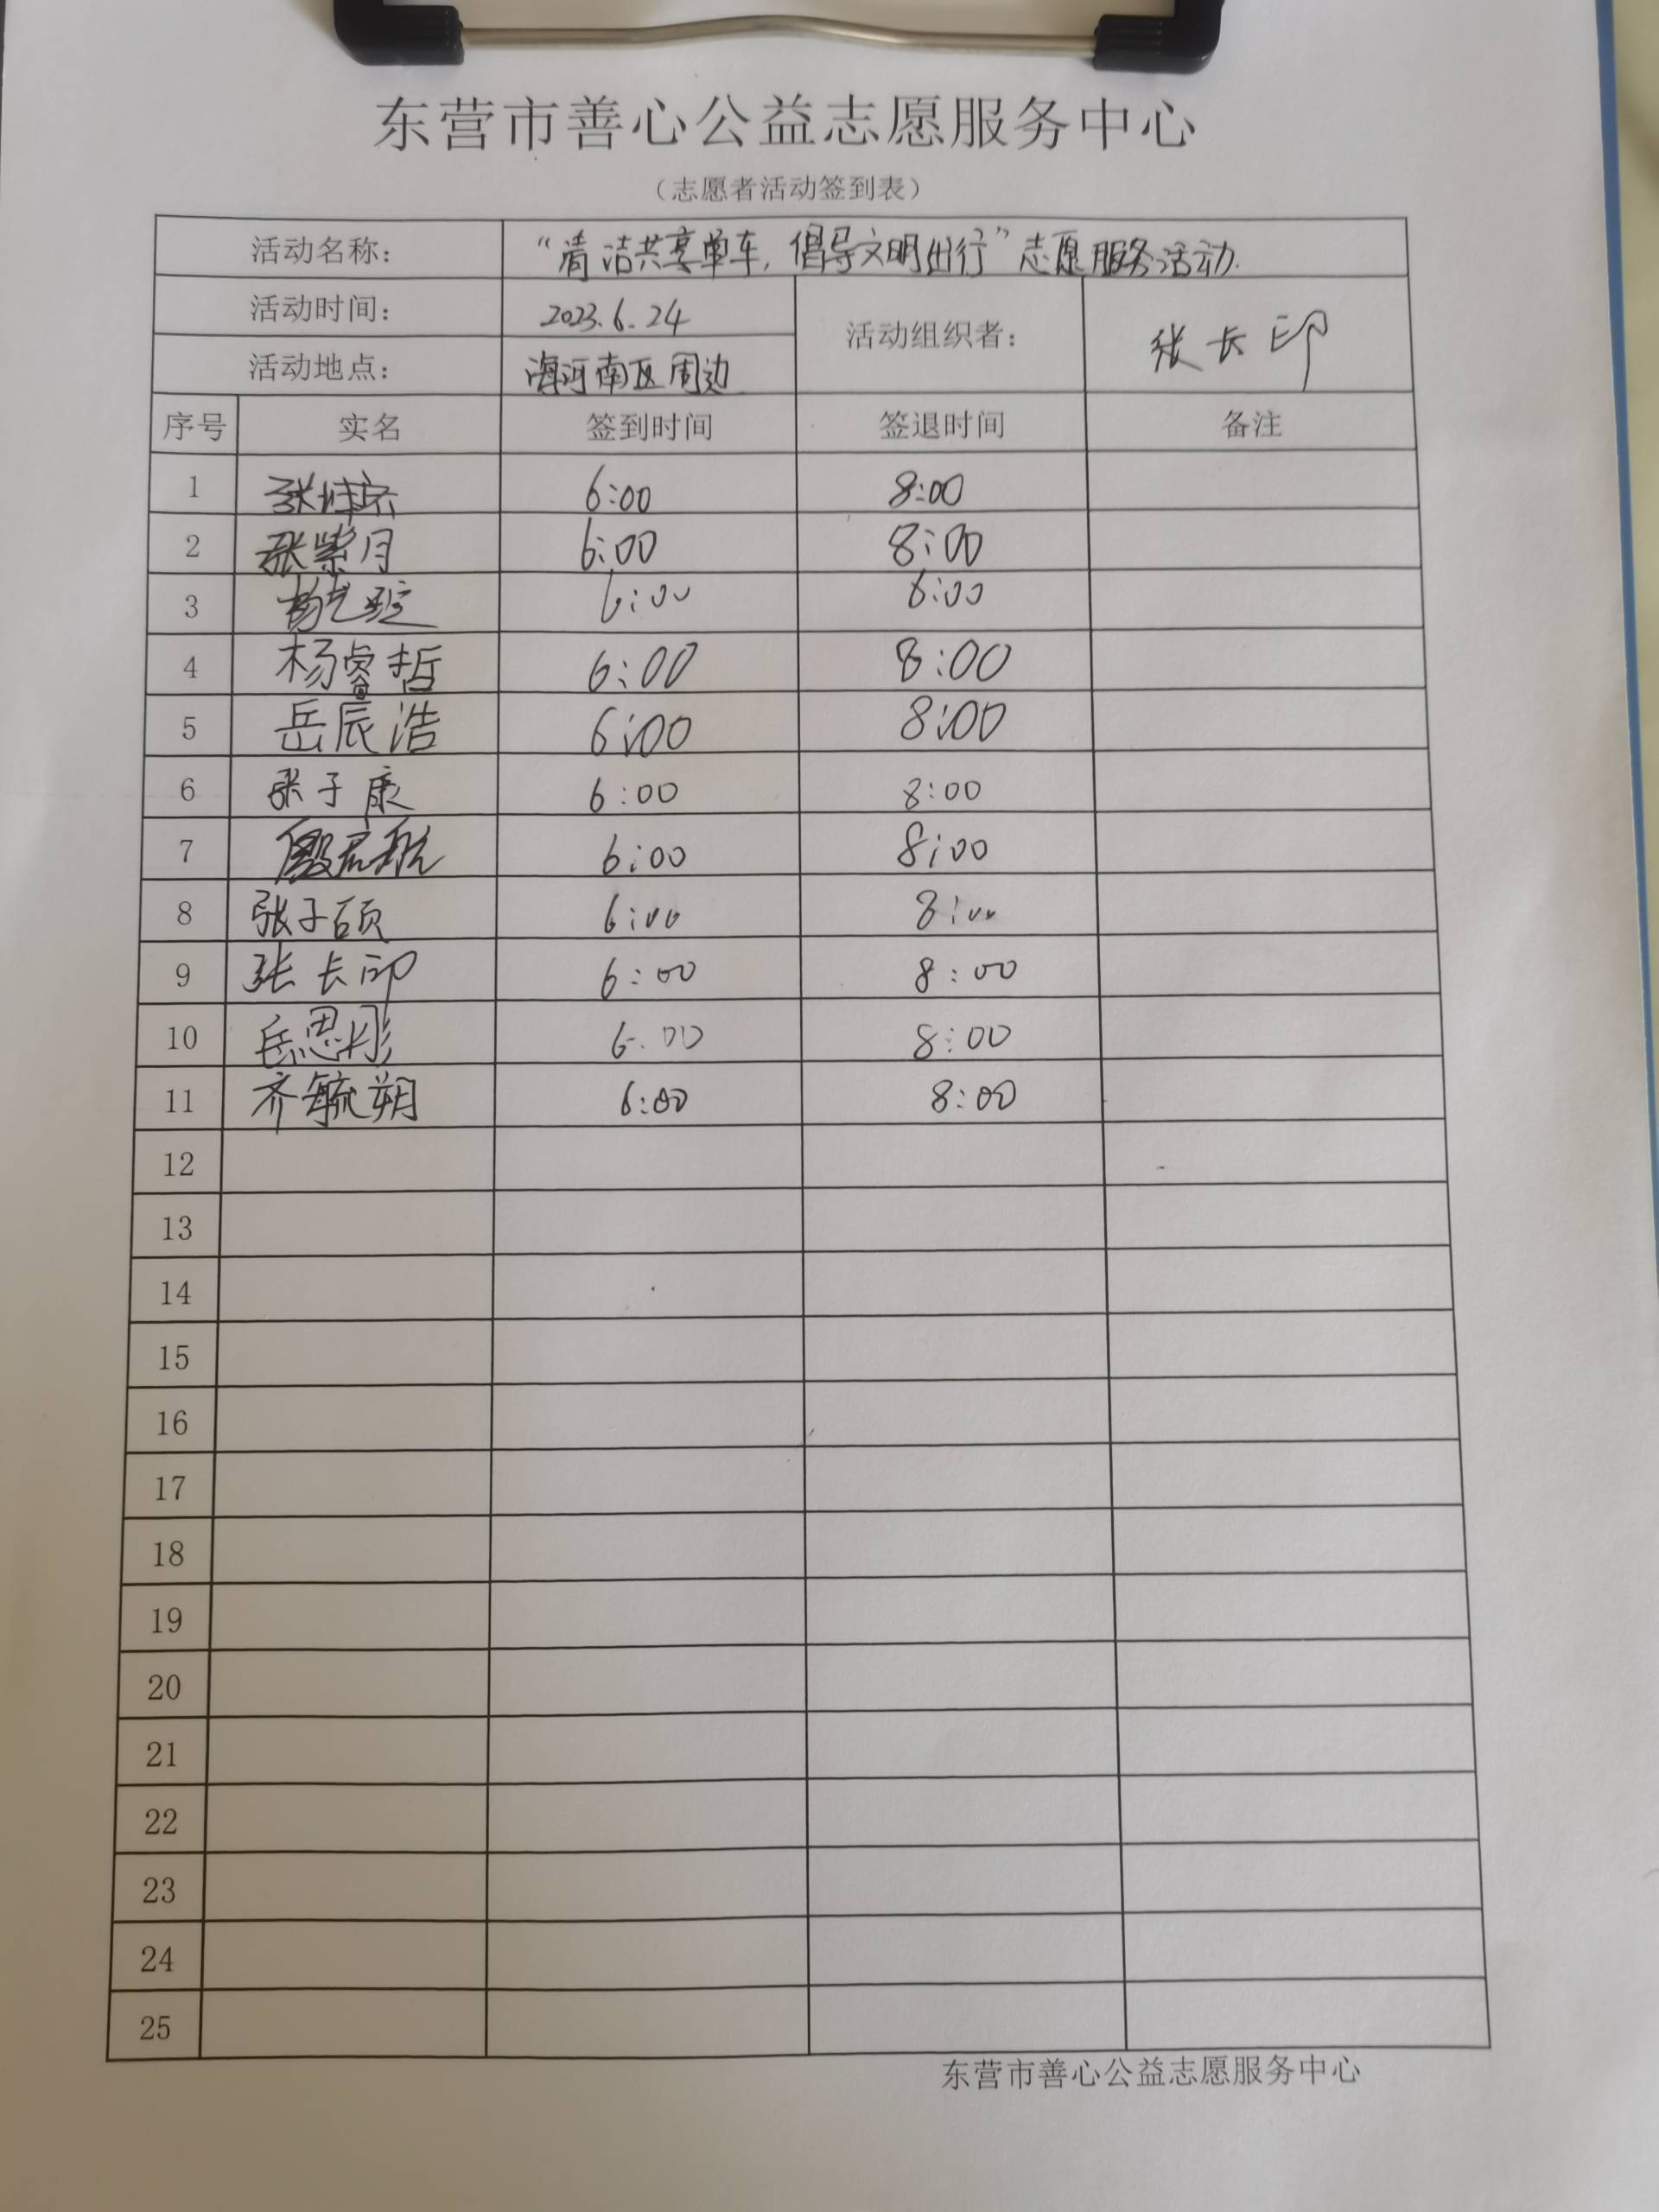 东营市善心公益志愿服务中心
（志愿者活动签到表）
活动名称： “清洁共享单车，倡导文明出行”志愿服务活动.
活动时间： 2023.6.24 活动组织者： 张长印
活动地点： 海河南区周边
序号 实名 签到时间 签退时间 备注
1 张 6:00 8:00
2 张紫月 6:00 8:00
3 杨艺 6:00 8:00
4 杨睿哲 6:00 8:00
5 岳辰浩 6:00 8:00
6 张子康 6:00 8:00
7 殷君航 6:00 8:00
8 张子硕 6:00 8:00
9 张长印 6:00 8:00
10 岳思彤 6:00 8:00
11 齐毓朔 6:00 8:00
12
13
14
15
16
17
18
19
20
21
22
23
24
25
东营市善心公益志愿服务中心